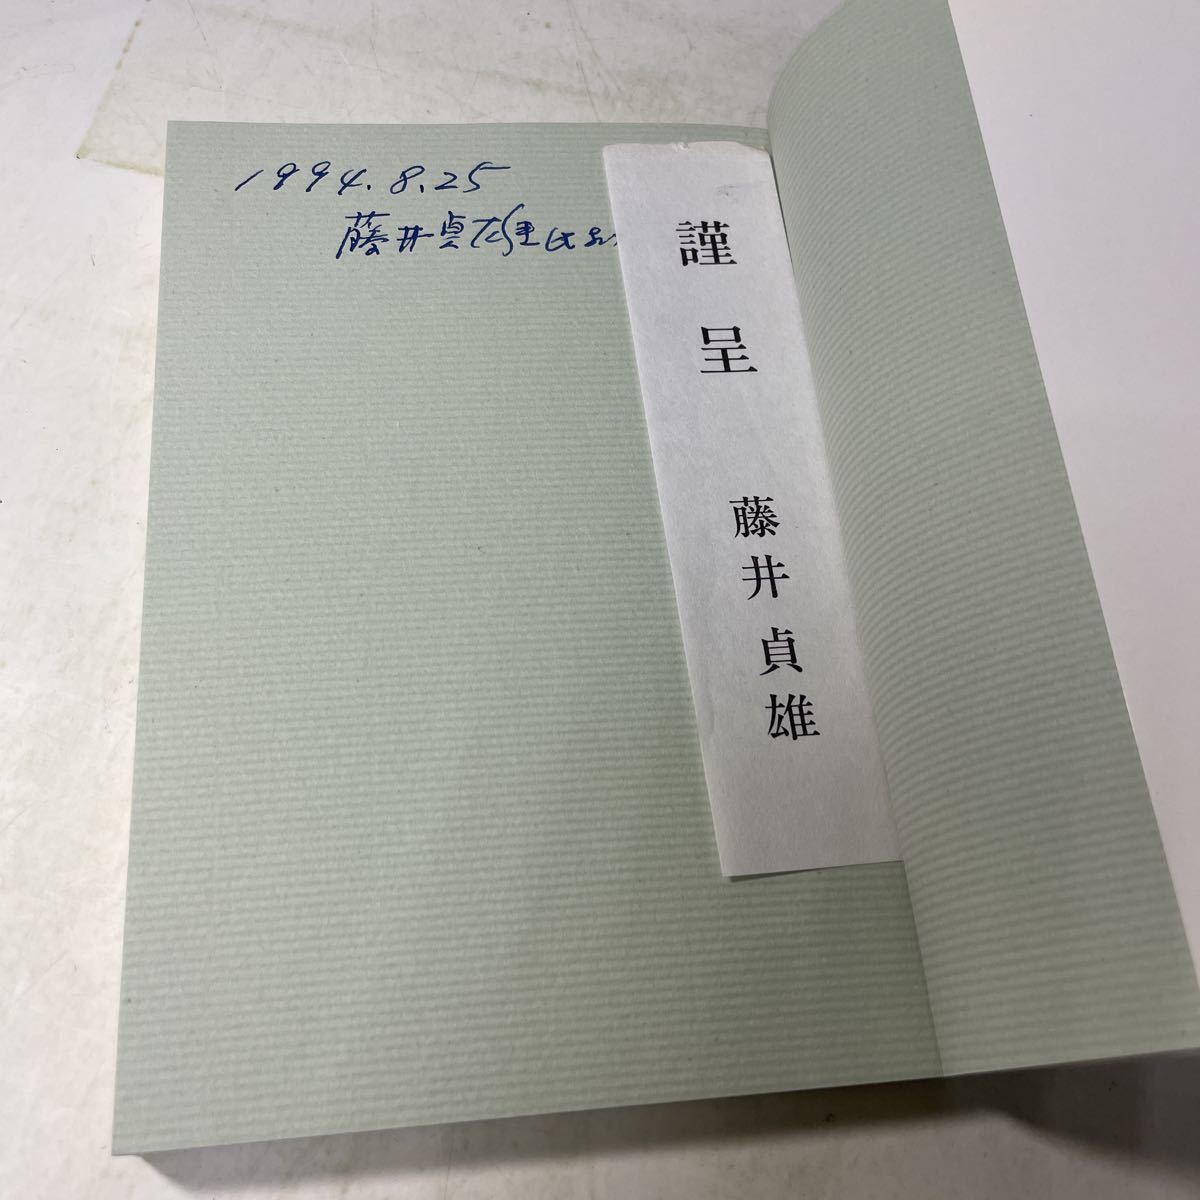 1994.8.25
藤井貞雄氏より
謹呈
藤井貞雄